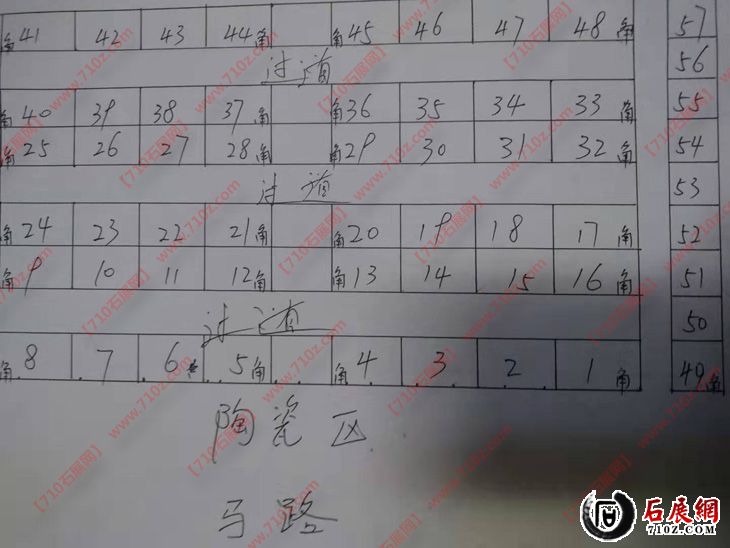 角41 42 43 44角 角45 46 47 48角 57
过道 56
角40 39 38 37角 角36 35 34 33角 55
角25 26 27 28角 角29 30 31 32角 54
过道 53
角24 23 22 21角 角20 19 18 17角 52
角9 10 11 12角 角13 14 15 16角 51
过道 50
角8 7 6 5角 角4 3 2 1角 49角
陶瓷区
马路
【710石展网】 www.710z.com
石展網